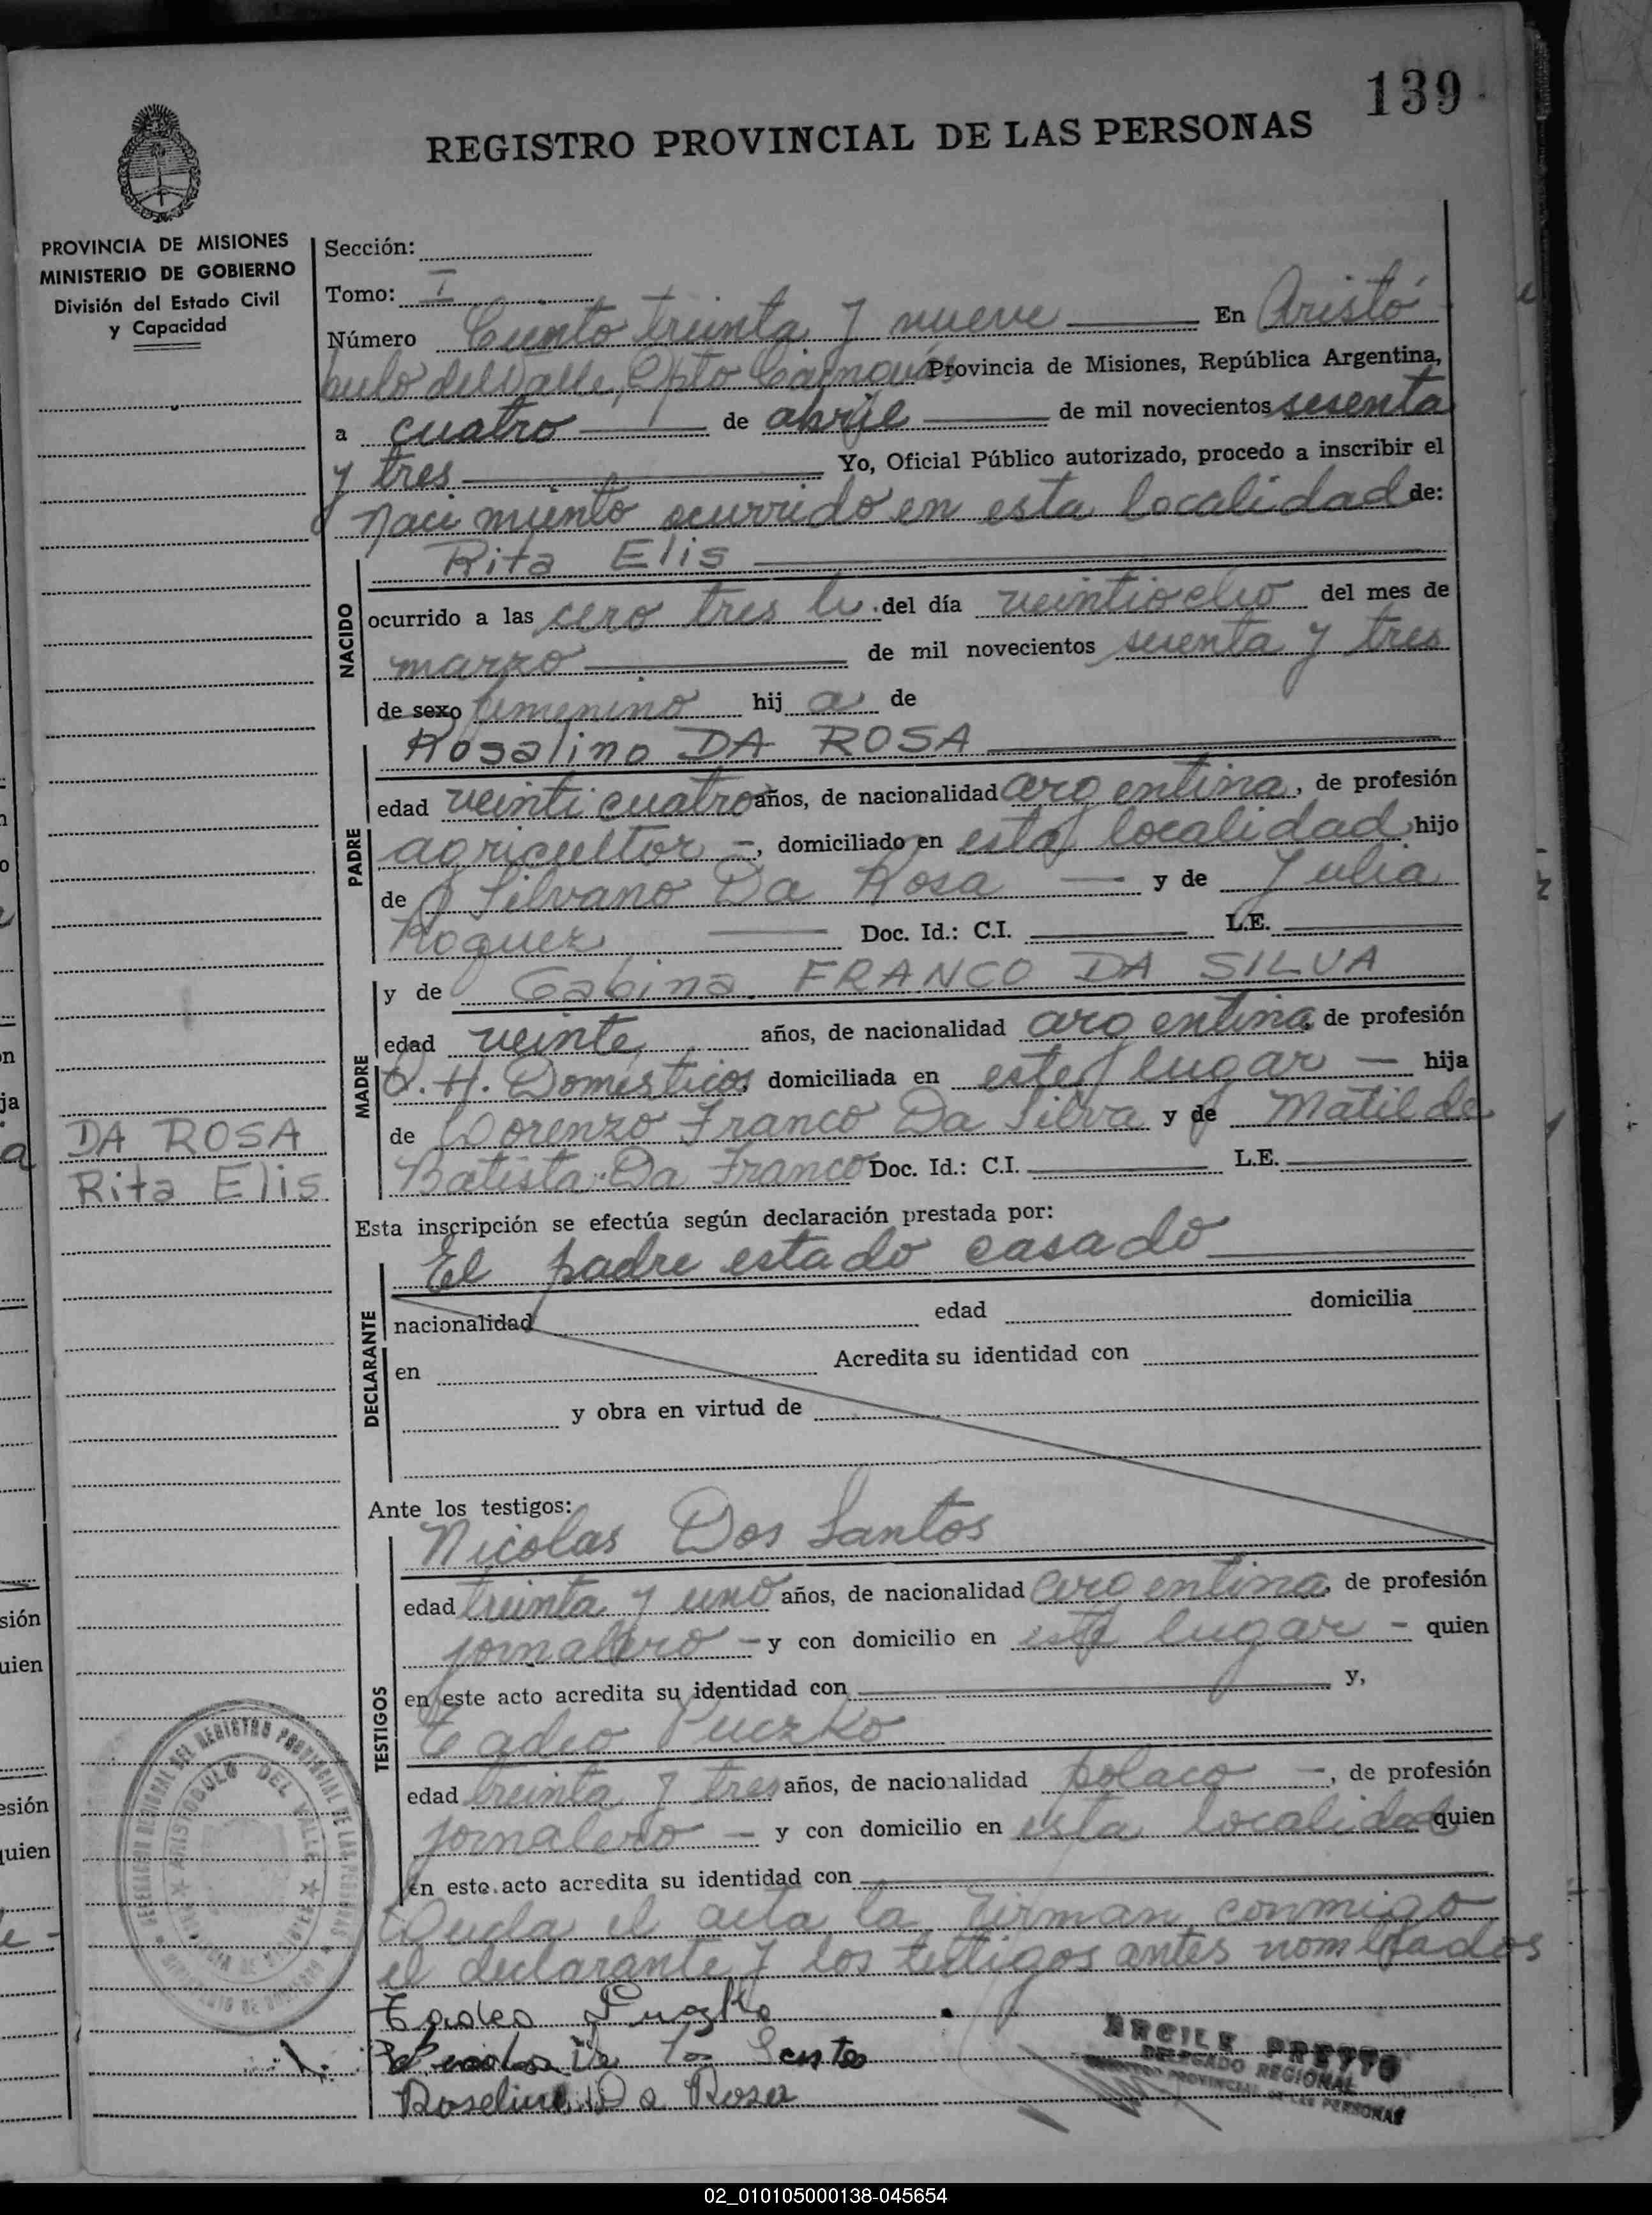 139
REGISTRO PROVINCIAL DE LAS PERSONAS
PROVINCIA DE MISIONES
MINISTERIO DE GOBIERNO
División del Estado Civil
y Capacidad
Sección:
Tomo: I
Número Ciento treinta y nueve En Aristó
bulo del Valle, Dpto Cainguás Provincia de Misiones, República Argentina,
a cuatro de abril de mil novecientos sesenta
y tres Yo, Oficial Público autorizado, procedo a inscribir el
Nacimiento ocurrido en esta localidad de:
NACIDO
Rita Elis
ocurrido a las cero tres h. del día veintiocho del mes de
marzo de mil novecientos sesenta y tres
de sexo femenino hij a de
PADRE
Rosalino DA ROSA
edad veinticuatro años, de nacionalidad argentina, de profesión
agricultor -, domiciliado en esta localidad hijo
de Silvano Da Rosa y de Julia
Roquez Doc. Id.: C.I. L.E.
MADRE
y de Gabina FRANCO DA SILVA
edad veinte años, de nacionalidad argentina de profesión
Q. H. Domésticos, domiciliada en este lugar - hija
de Lorenzo Franco Da Silva y de Matilde
Batista Da Franco Doc. Id.: C.I. L.E.
DA ROSA
Rita Elis
Esta inscripción se efectúa según declaración prestada por:
DECLARANTE
El padre estado casado
nacionalidad edad domicilia
en Acredita su identidad con
y obra en virtud de
Ante los testigos:
TESTIGOS
Nicolas Dos Santos
edad treinta y uno años, de nacionalidad argentina, de profesión
jornalero - y con domicilio en este lugar - quien
en este acto acredita su identidad con y,
Tadeo Puczko
edad treinta y tres años, de nacionalidad polaco -, de profesión
jornalero - y con domicilio en esta localidad quien
en este acto acredita su identidad con
el acta la firman conmigo
el declarante y los testigos antes nombrados
Tadeo Puczko
Roseline Da Rosa
ERCILE PRETTO
DELEGADO REGIONAL
REGISTRO PROVINCIAL DE LAS PERSONAS
DELEGACION REGIONAL DEL REGISTRO PROVINCIAL DE LAS PERSONAS
ARISTOBULO DEL VALLE
02_010105000138-045654